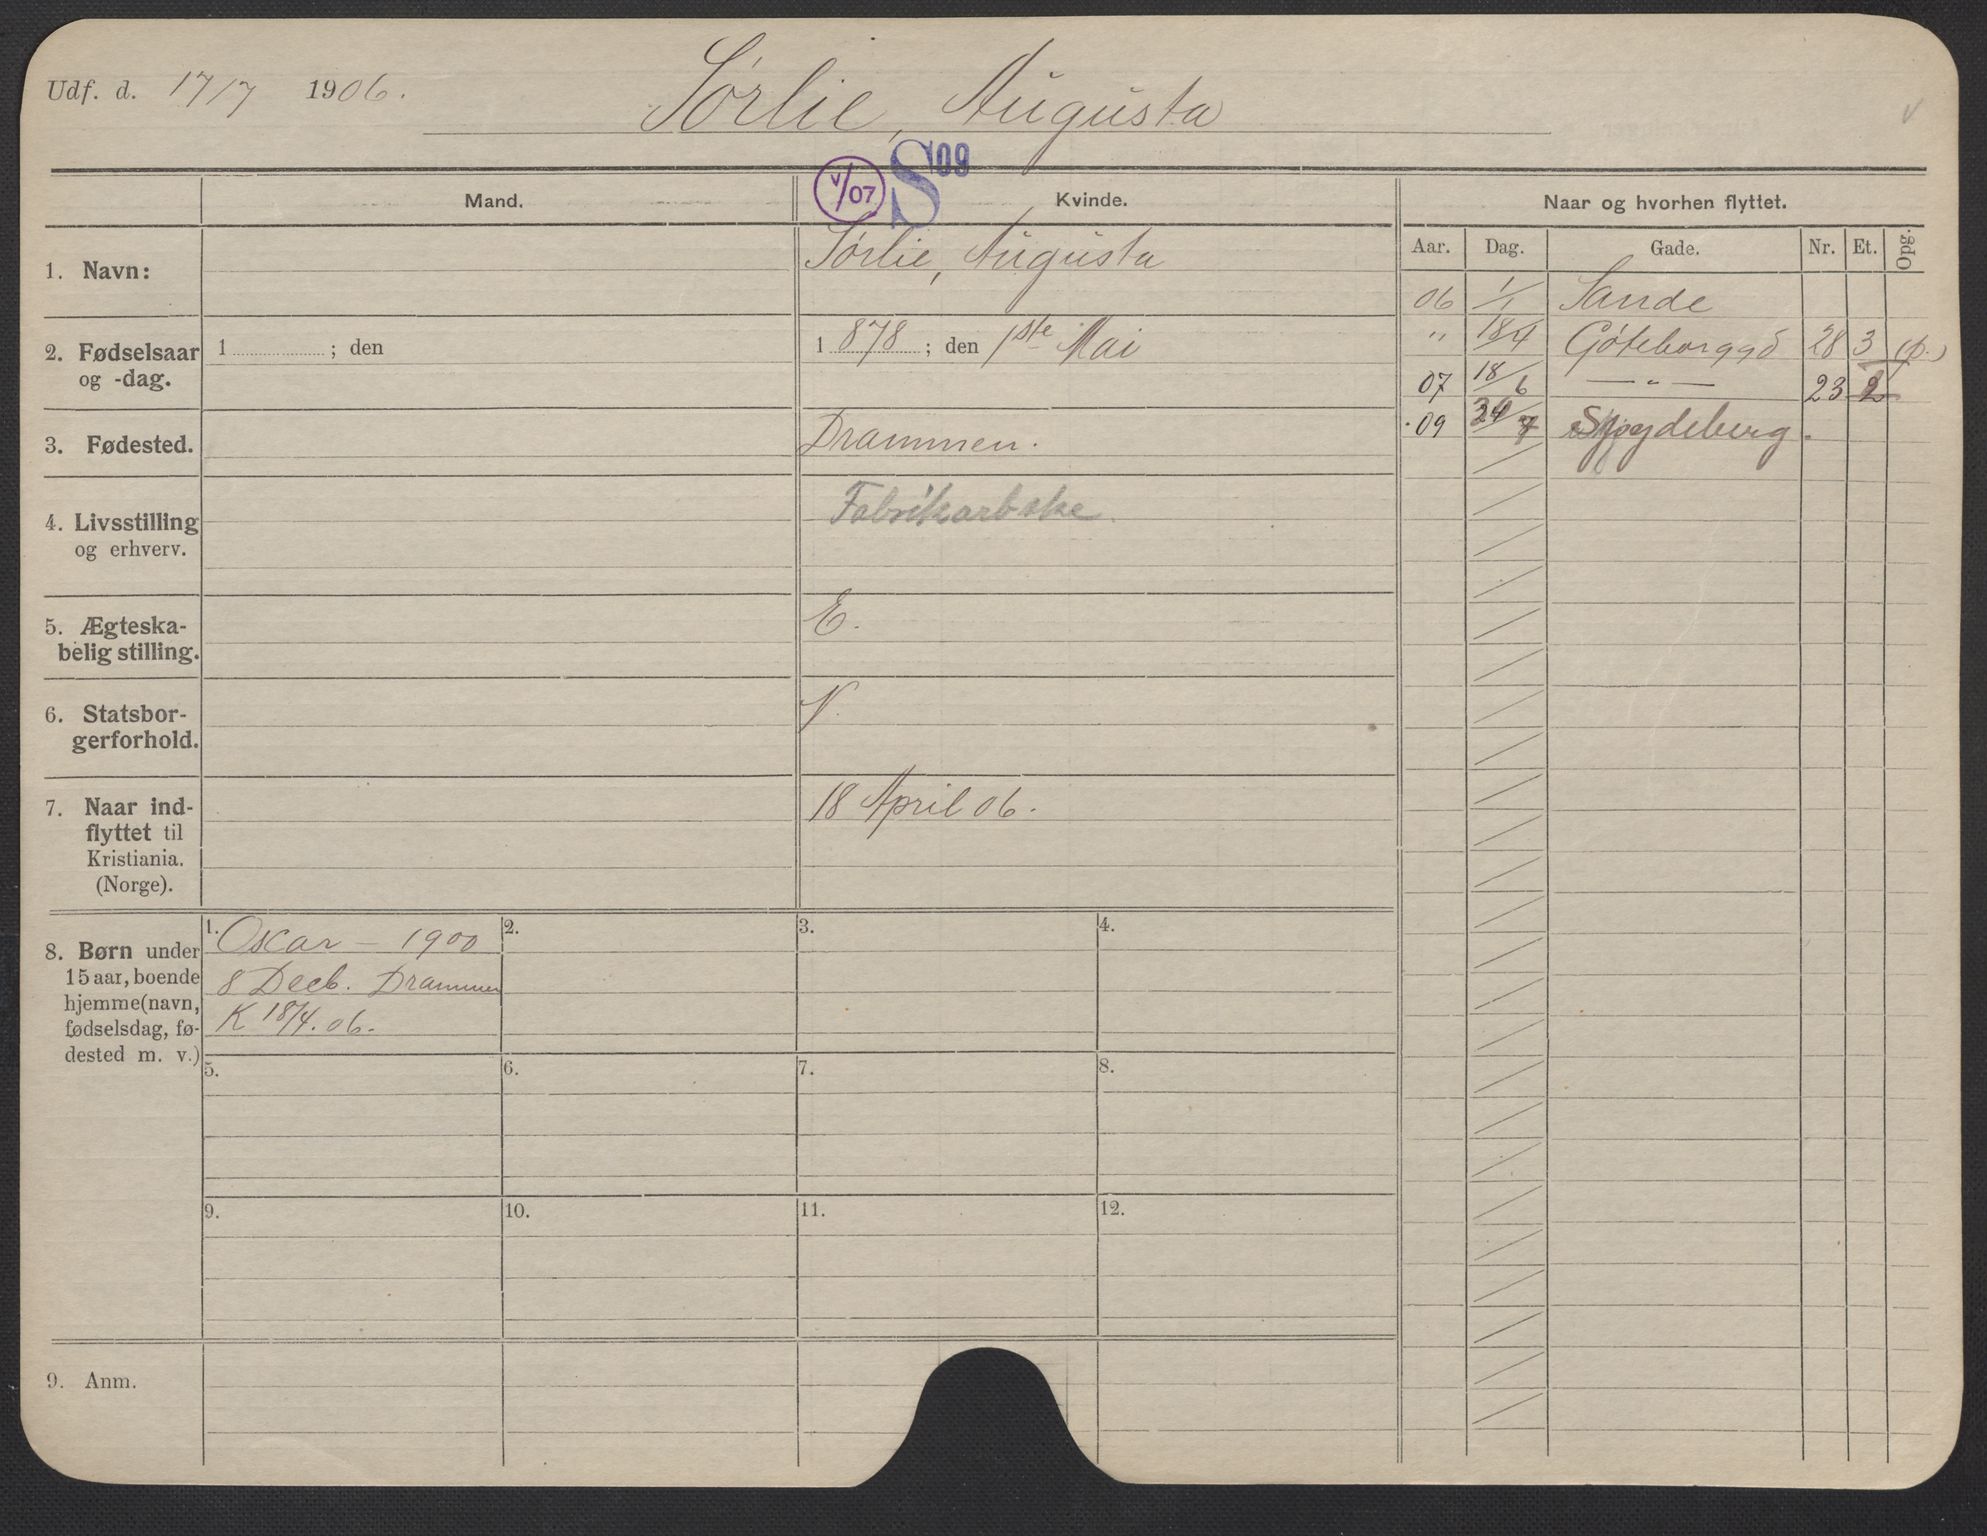 Udf. d. 17/7 1906.
Sørlie, Augusta
v/07 S 09
Mand. Kvinde. Naar og hvorhen flyttet.
Aar. Dag. Gade. Nr. Et. Opg.
1. Navn: Sørlie, Augusta
06 1/1 Sande
2. Fødselsaar og -dag. 1 ; den 1 878 ; den 1ste Mai
" 18/4 Göteborggd 28 3 (p.)
07 18/6 — " — 23 2
09 24/7 Spydeberg.
3. Fødested. Drammen.
4. Livsstilling og erhverv. Fabrikarbske.
5. Ægteska-
belig stilling. E.
6. Statsbor-
gerforhold. N.
7. Naar ind-
flyttet til
Kristiania.
(Norge). 18 April 06.
8. Børn under
15 aar, boende
hjemme (navn,
fødselsdag, fø-
dested m. v.)
1. Oscar – 1900
8 Decb. Drammen
K 18/4. 06.
2. 3. 4.
5. 6. 7. 8.
9. 10. 11. 12.
9. Anm.